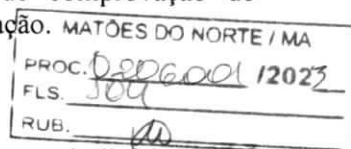 ação.
MATÕES DO NORTE / MA
PROC. 0206001 /2023
FLS.
RUB.